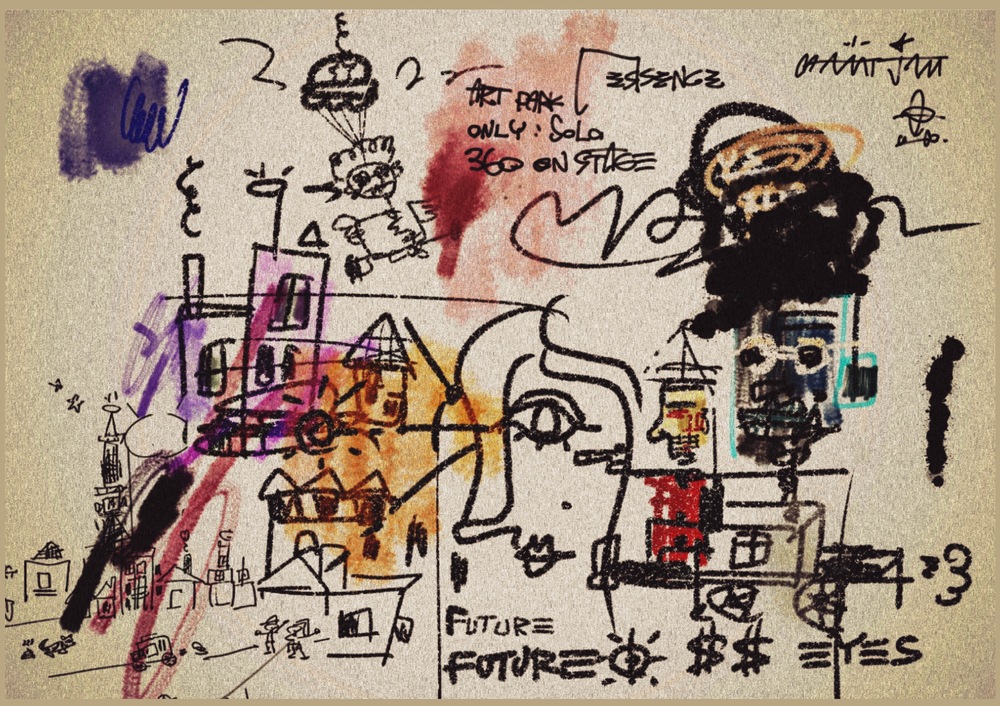 ESSENCE
ART PARK
ONLY : SOLO
360 ON STAGE
FUTURE
FUTURE $$ EYES